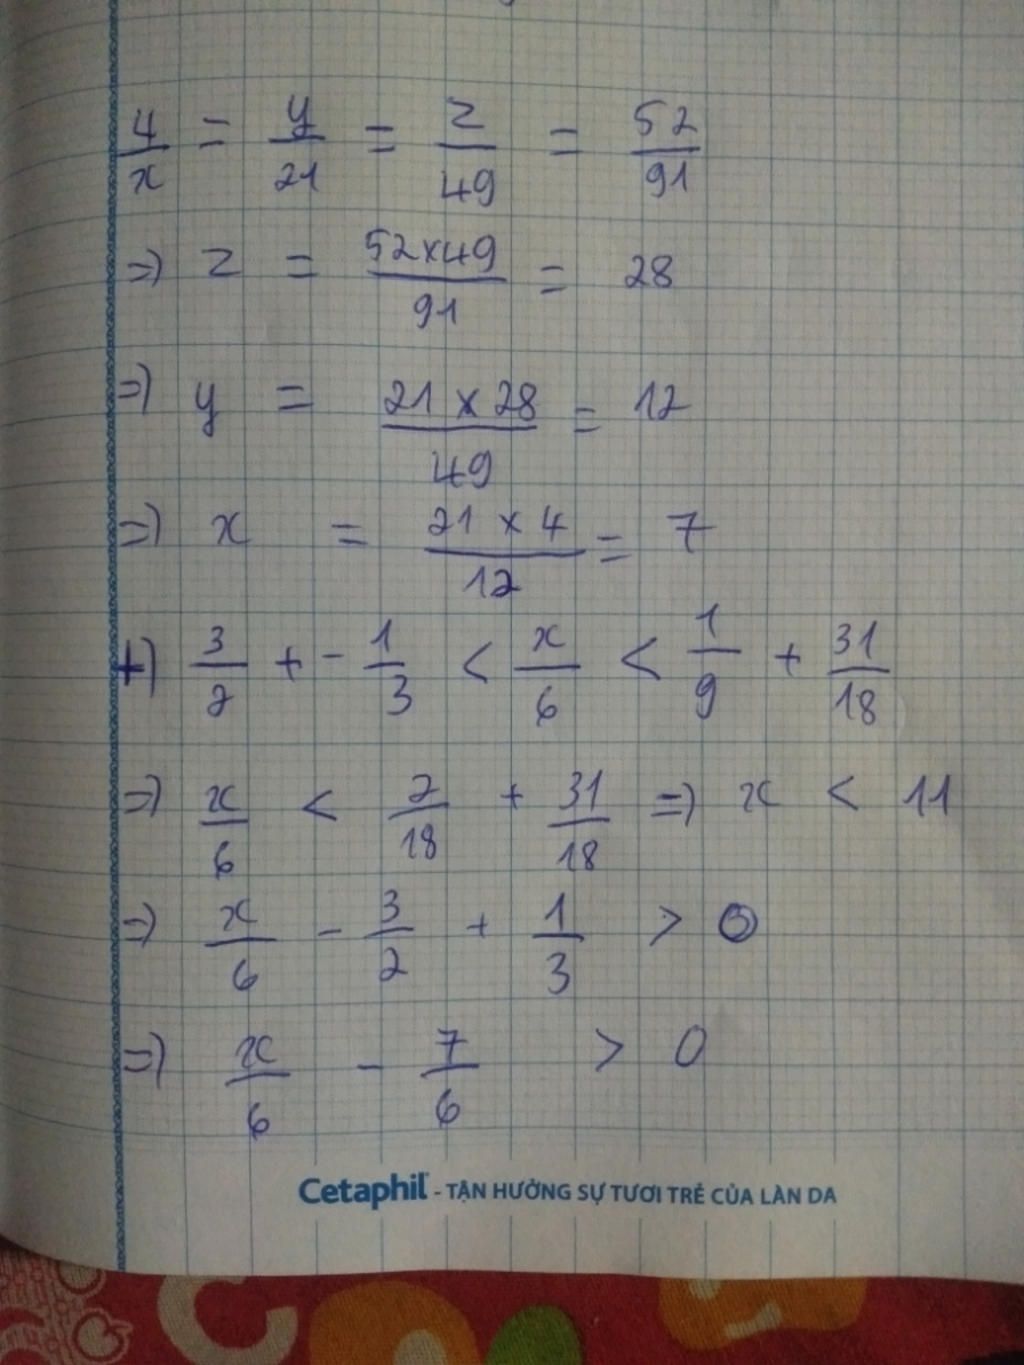 4/x = y/21 = z/49 = 52/91
=> z = 52x49/91 = 28
=> y = 21 x 28/49 = 12
=> x = 21 x 4/12 = 7
+) 3/2 + - 1/3 < x/6 < 1/9 + 31/18
=> x/6 < 2/18 + 31/18 => x < 11
=> x/6 - 3/2 + 1/3 > 0
=> x/6 - 7/6 > 0
Cetaphil - TẬN HƯỞNG SỰ TƯƠI TRẺ CỦA LÀN DA